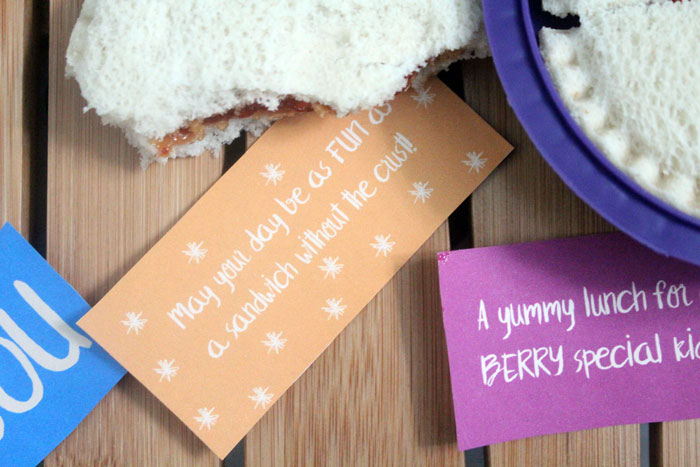 May your day be as FUN as
a sandwich without the crust!
A yummy lunch for
BERRY special
ou